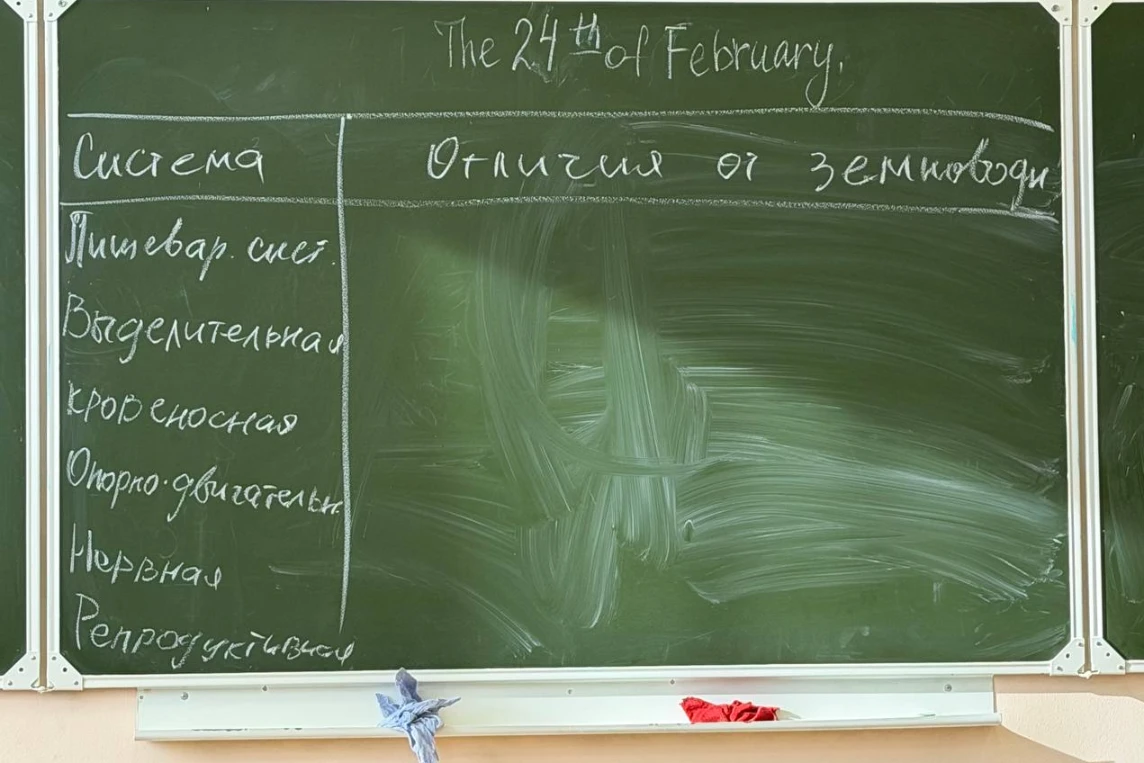 The 24th of February.
Система Отличия от земноводн
Пищевар. сист.
Выделительная
кровеносная
Опорно-двигательн.
Нервная
Репродуктивная